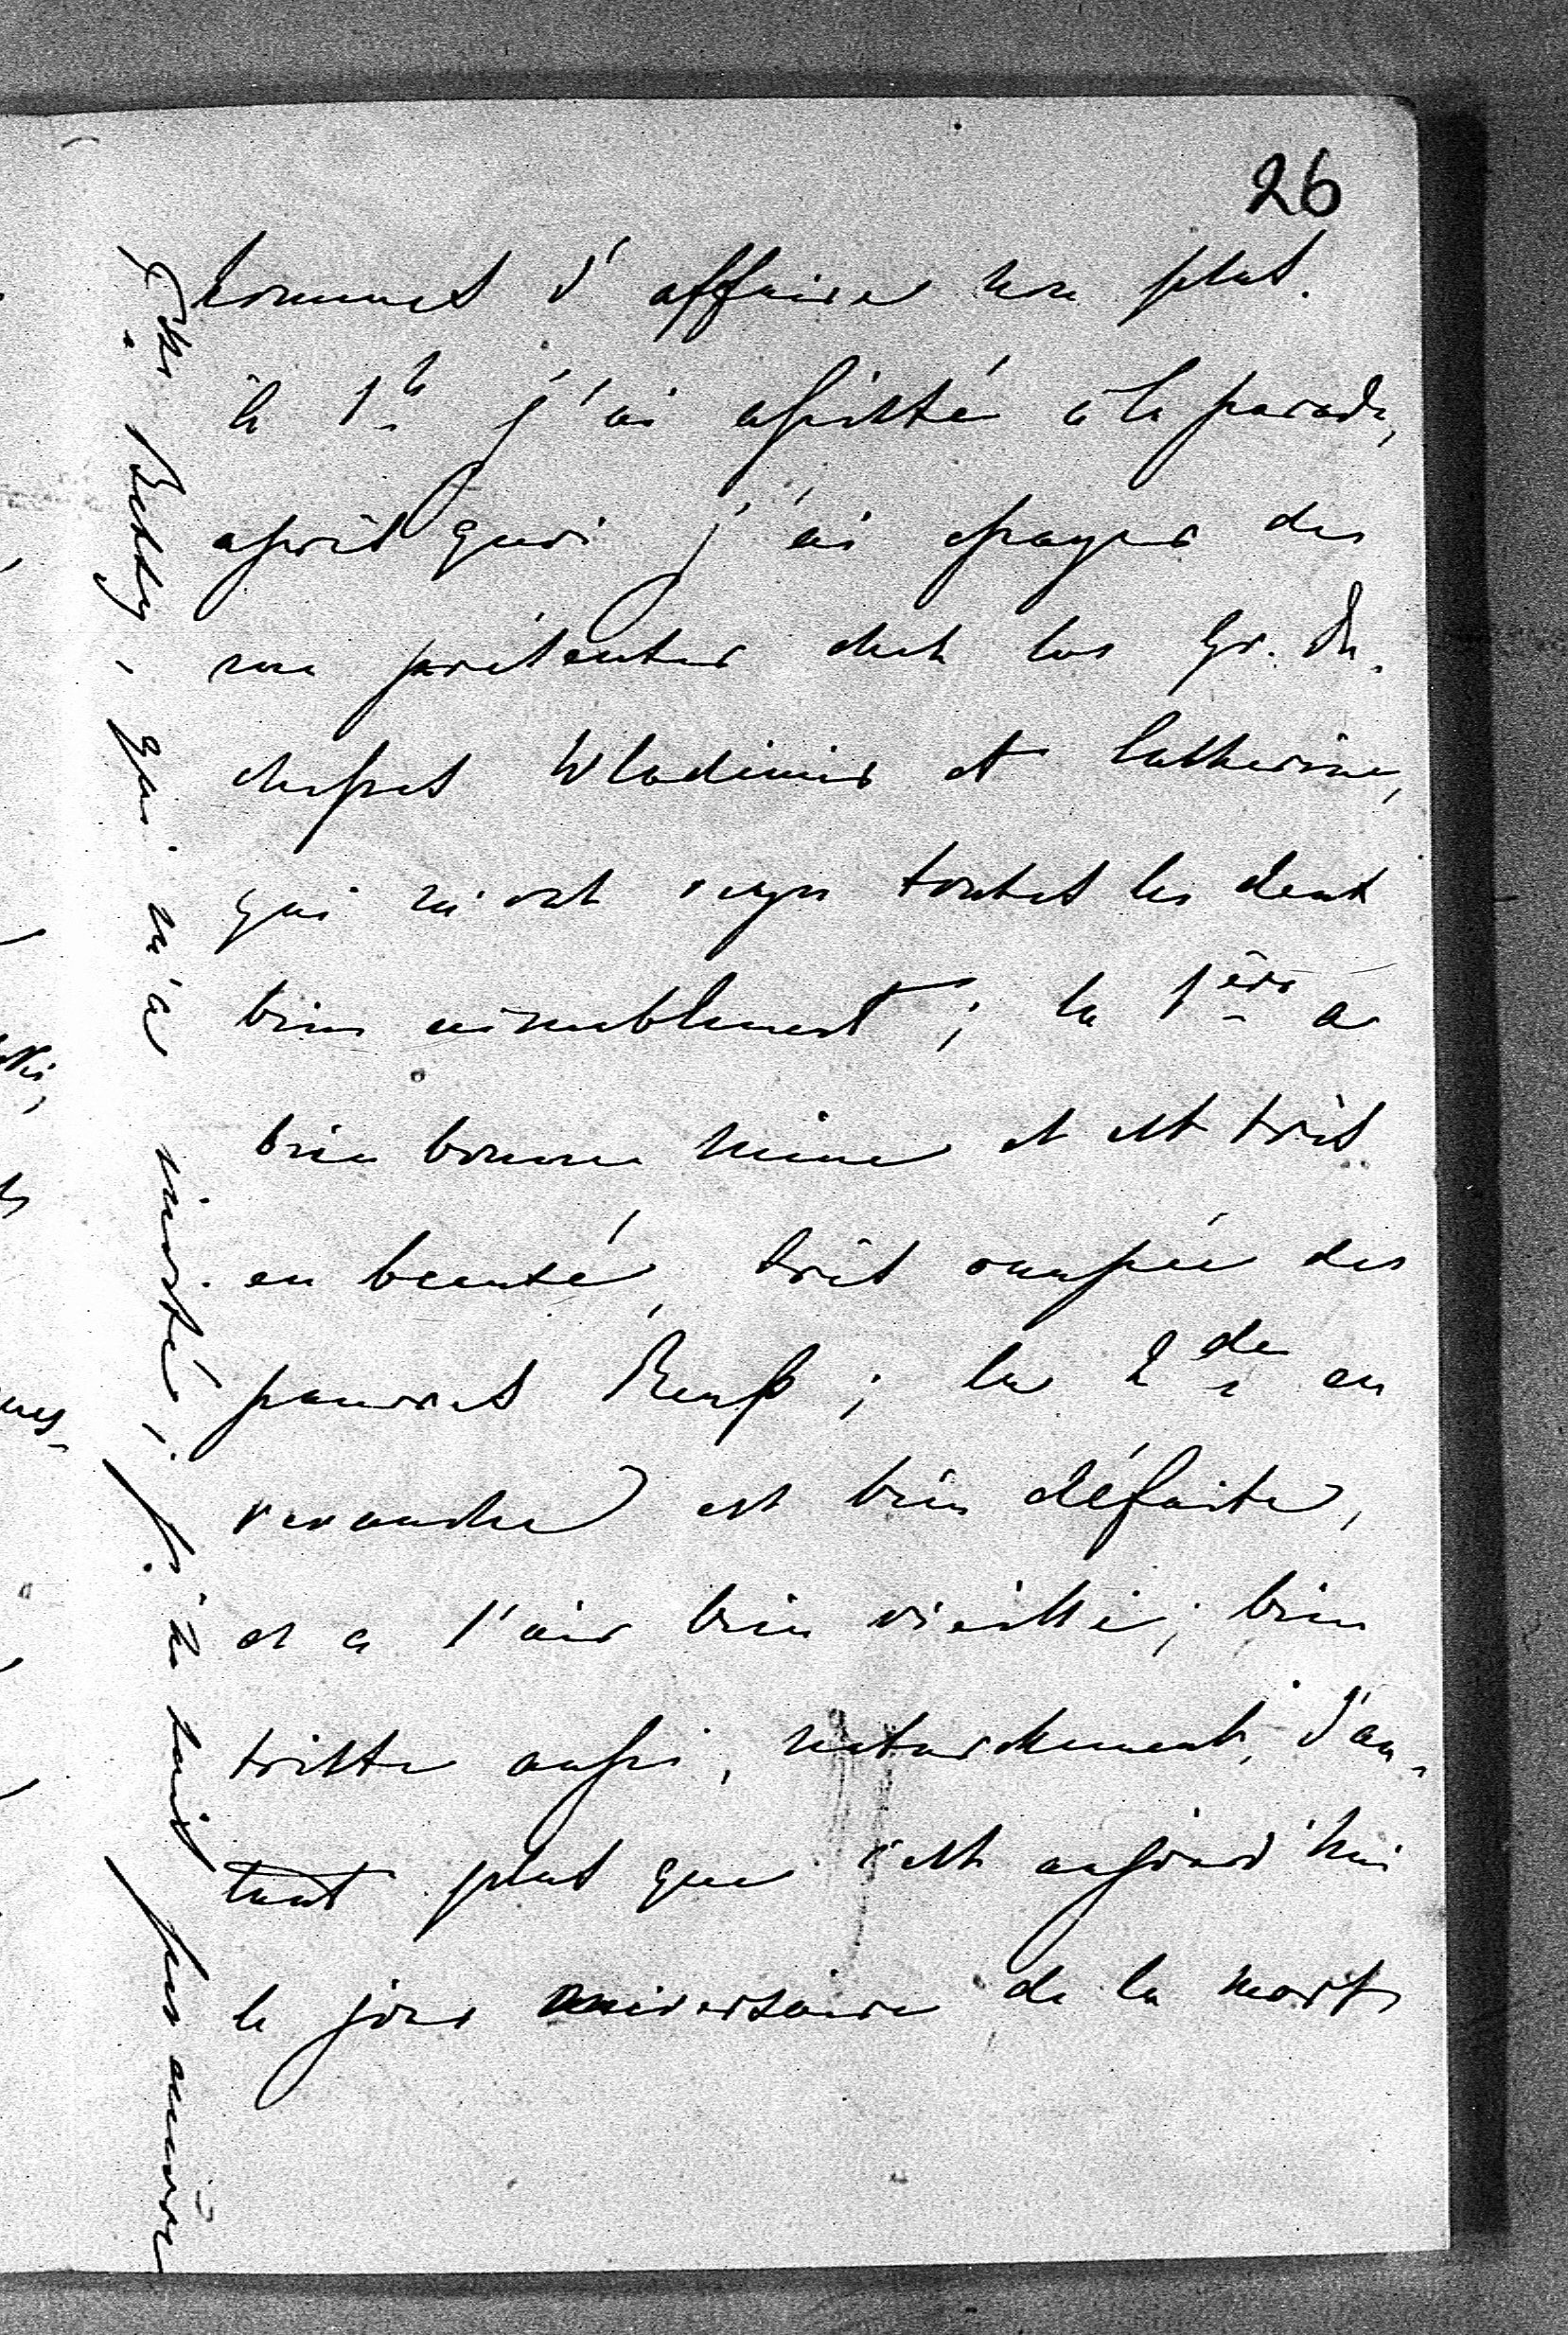 26
hommes d'affaires non plus.
à 1h j'ai assisté à la parade,
après quoi j'ai essayer des
me présenter chez les Gr. Du-
chesses Wladimir et Catherine,
qui m'ont reçu toutes les deux
bien aimablement; la 1ère a
bien bonne mine et est très
en beauté, très occupée des
pauvres Reuss; la 2de en
revanche est bien défaite,
et a l'air bien vieillie; bien
triste aussi, naturellement, d'au-
tant plus que c'est aujourd'hui
le jour aniversaire de la mort
Betsy, qui m'a invité; je ne suis pas encore